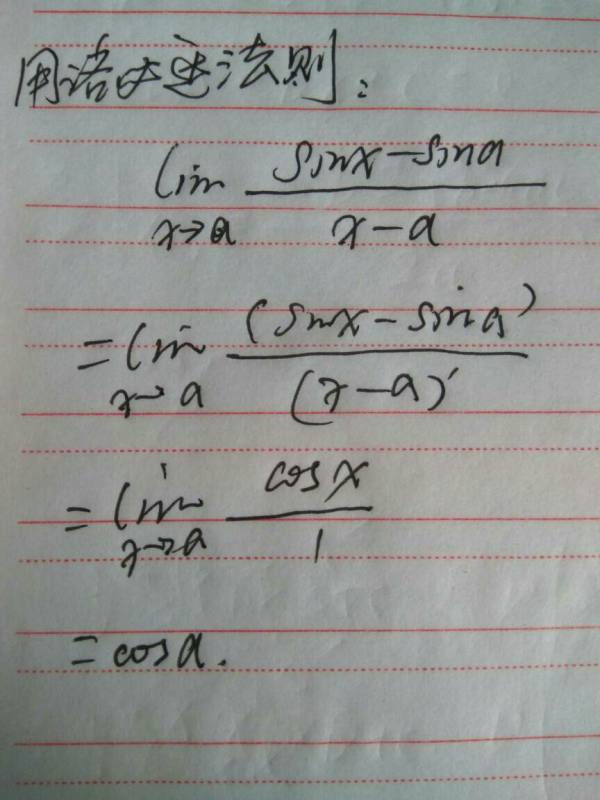 用洛必达法则:
lim x→a (sinx-sina)/(x-a)
=lim x→a (sinx-sina)'/(x-a)'
=lim x→a cosx/1
=cosa.